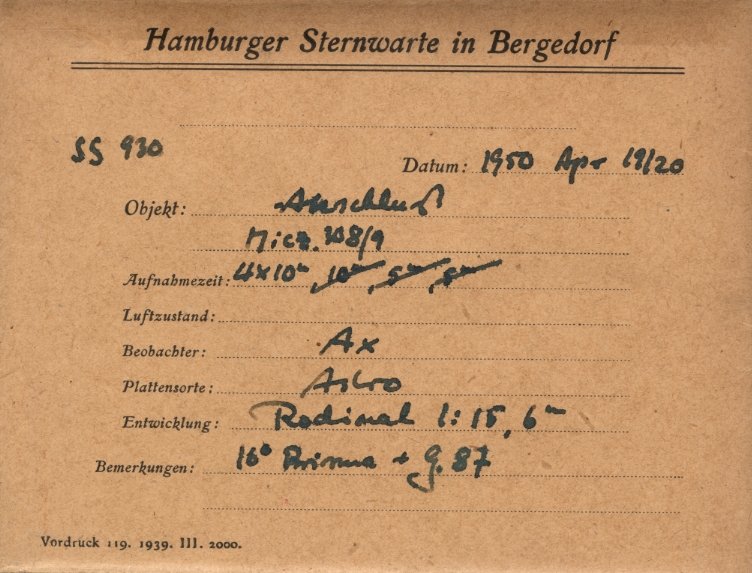 Hamburger Sternwarte in Bergedorf
SS 930
Datum: 1950 Apr 19/20
Objekt: Anschluß
108/9
Aufnahmezeit: 4x10m, 10m, 5m, 5m
Luftzustand:
Beobachter: Ax
Plattensorte: Astro
Entwicklung: Rodinal 1:15, 6m
Bemerkungen: 16° Prisma + g. 87
Vordruck 119. 1939. III. 2000.